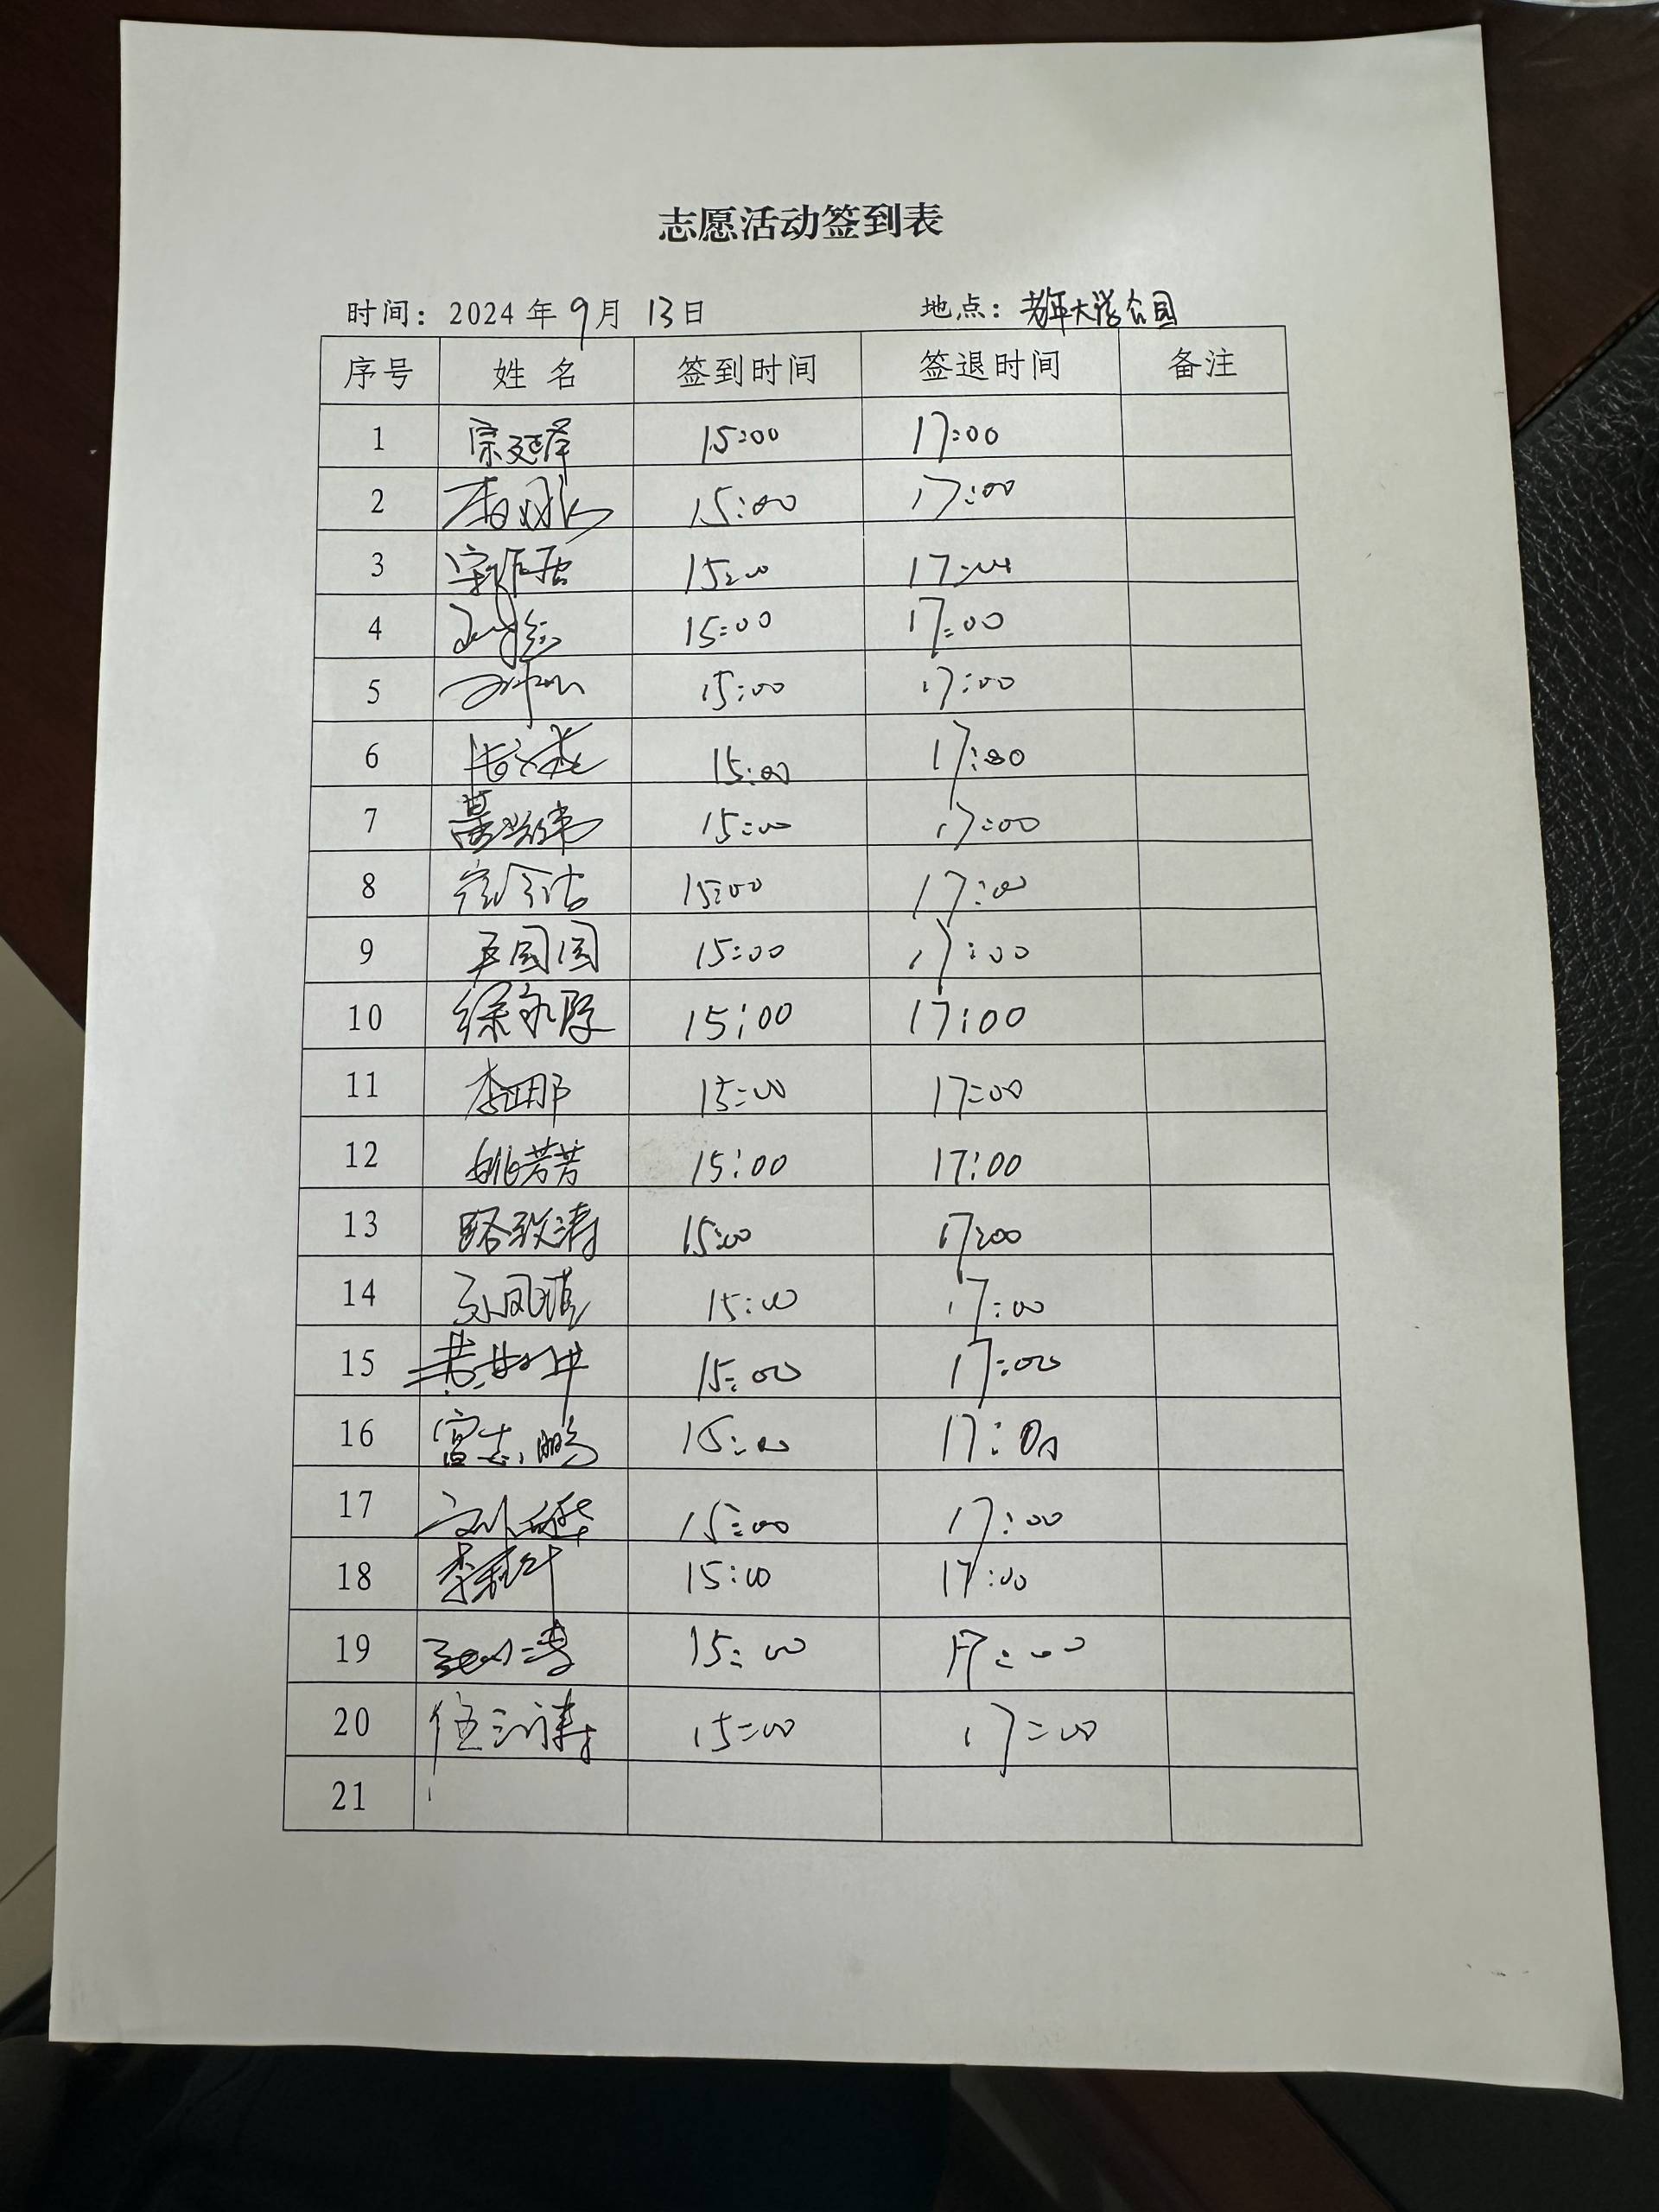 志愿活动签到表
时间：2024年9月13日 地点：老年大学公园
序号 姓名 签到时间 签退时间 备注
1 宗延泽 15:00 17:00
2 15:00 17:00
3 15:00 17:00
4 15:00 17:00
5 15:00 17:00
6 15:00 17:00
7 15:00 17:00
8 15:00 17:00
9 国国 15:00 17:00
10 徐 15:00 17:00
11 李 15:00 17:00
12 姚芳芳 15:00 17:00
13 路致涛 15:00 17:00
14 孙凤 15:00 17:00
15 15:00 17:00
16 富志鹏 15:00 17:00
17 15:00 17:00
18 李 15:00 17:00
19 15:00 17:00
20 伍 涛 15:00 17:00
21